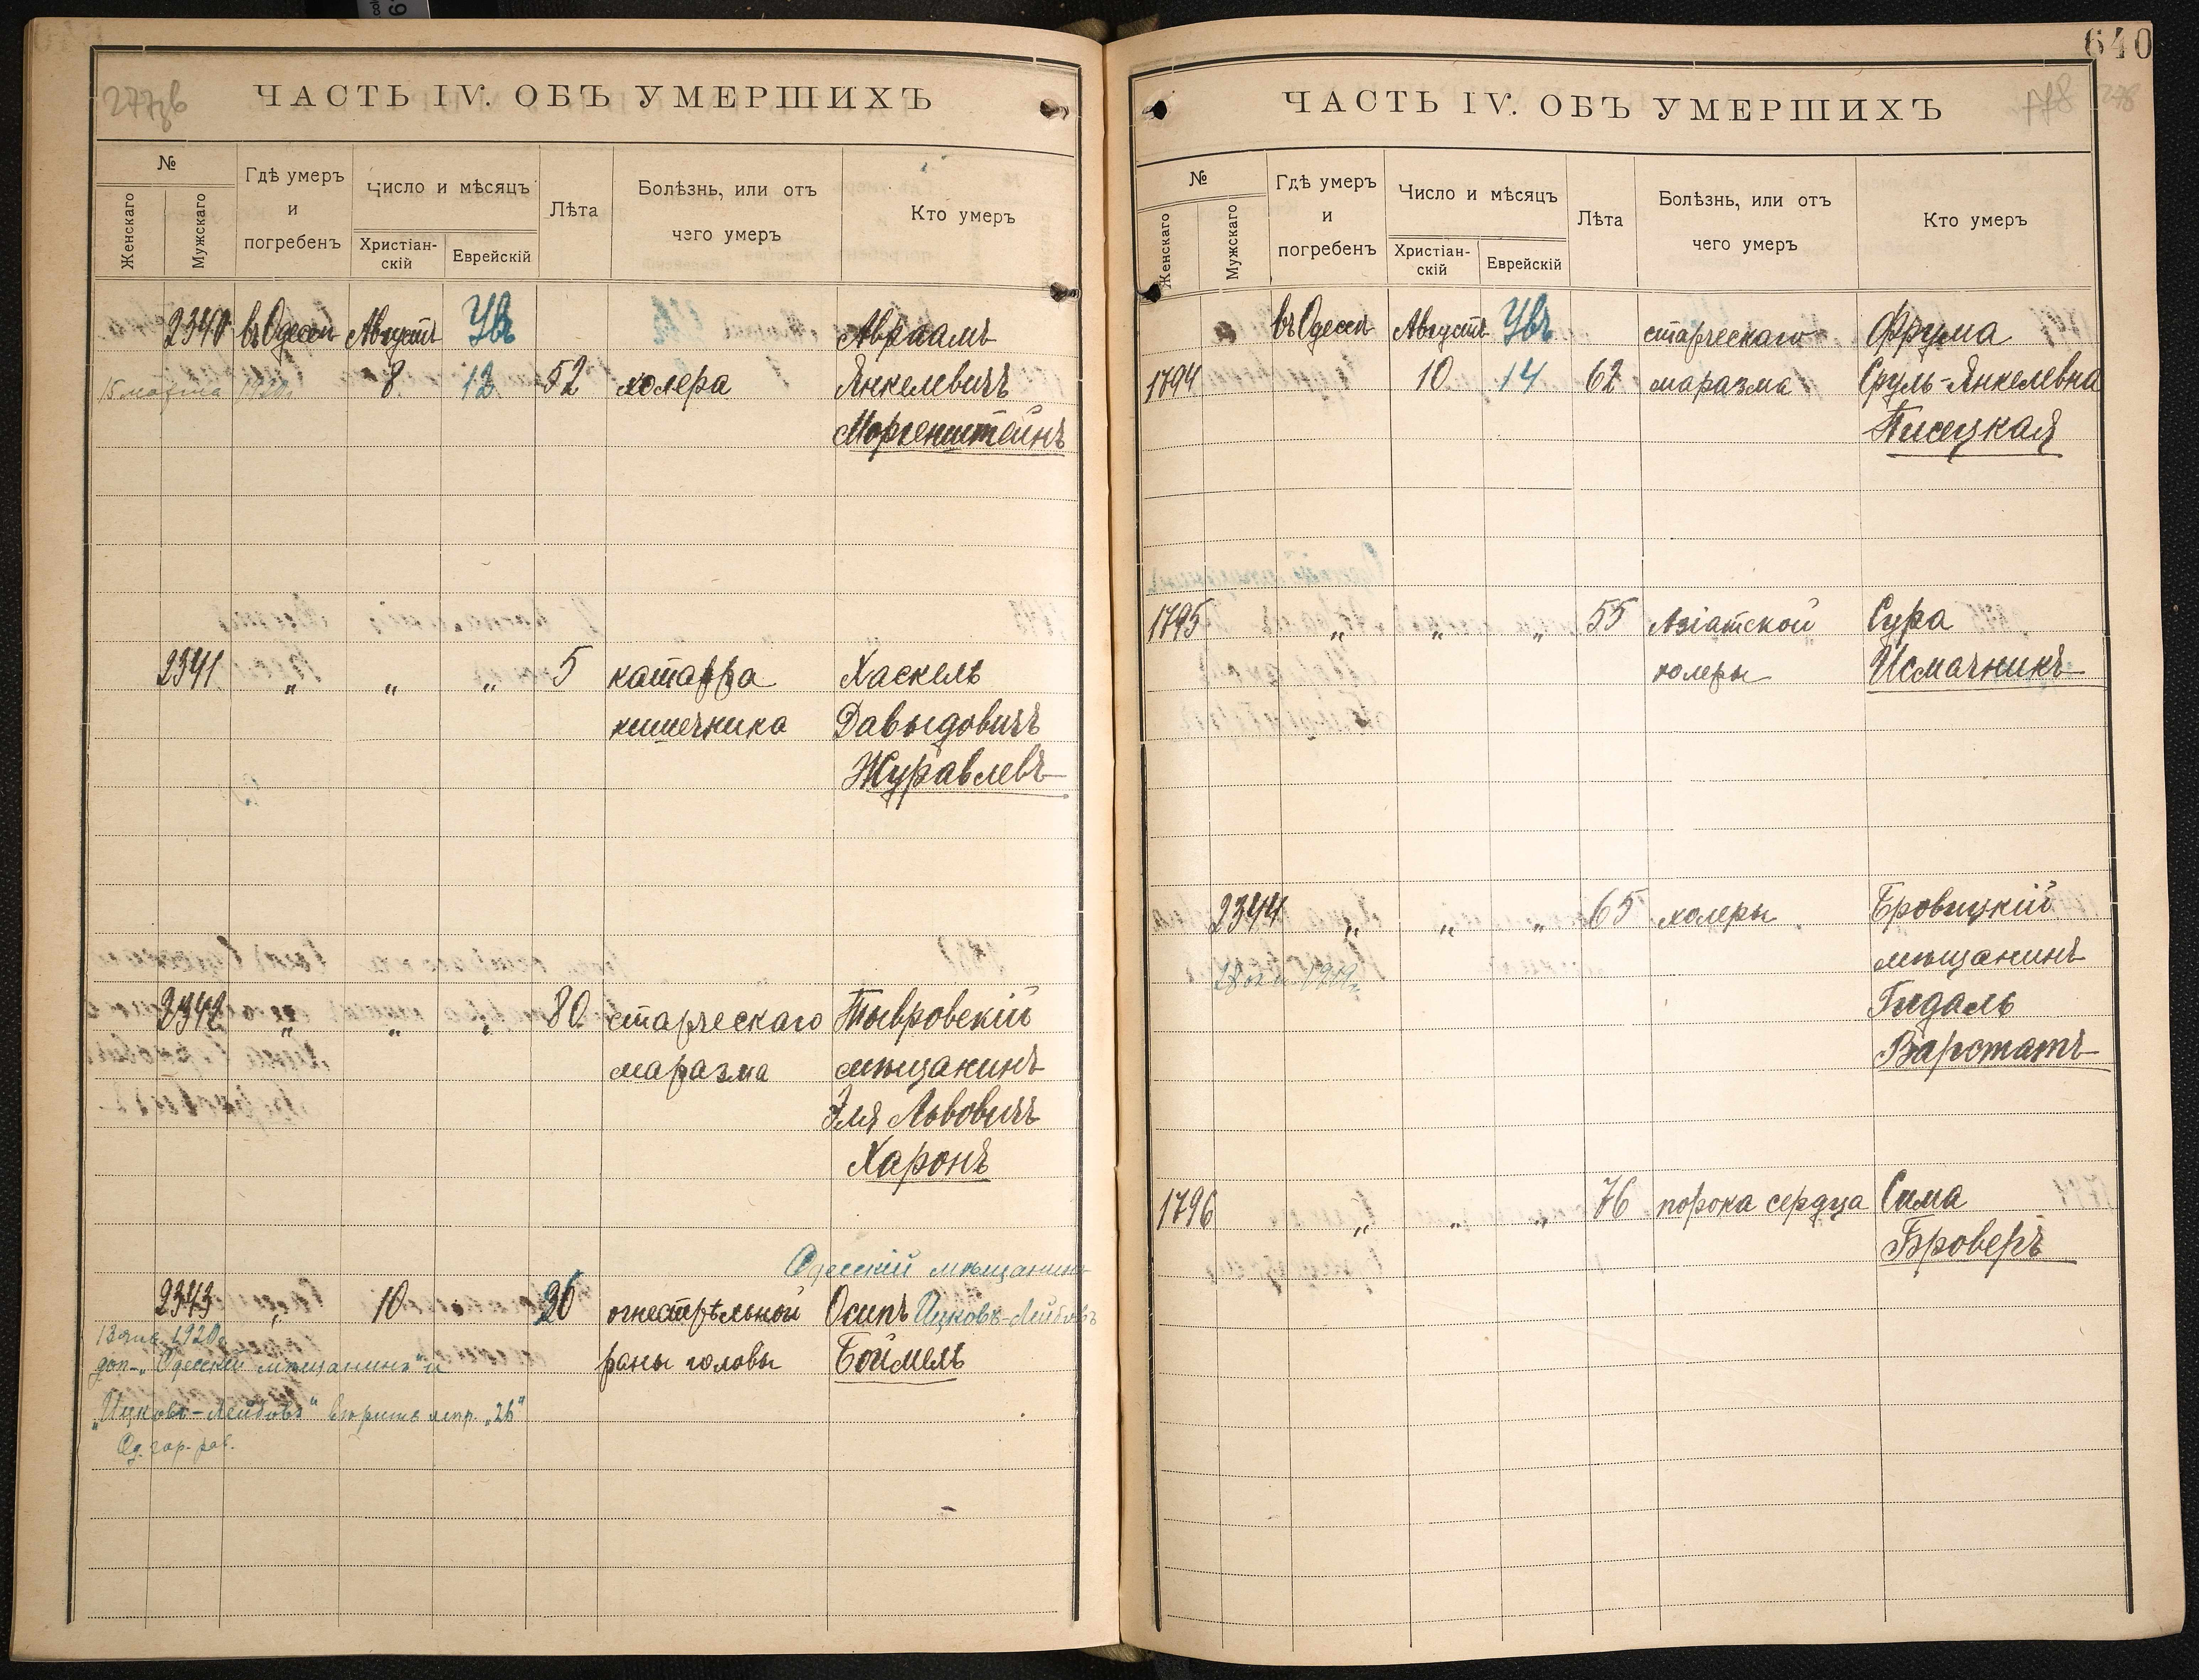 ЧАСТЬ IV. ОБЪ УМЕРШИХЪ
№
Женскаго
Мужскаго
Гдѣ умеръ
и
погребенъ
Число и мѣсяцъ
Христіан-
скій
Еврейскій
Лѣта
Болѣзнь, или отъ
чего умеръ
Кто умеръ
2340 въ Одессѣ Августъ Увъ Авраамъ
15 марта 1920г. 8 12 52 холера Янкелевичъ
Моргенштейнъ
2341 " " " 5 катарра Хаскель
кишечника Давыдовичъ
Журавлевъ
2342 " " " 80 старческаго Тывровскій
маразма мѣщанинъ
Эля Львовичъ
Харонъ
Одесскій мѣщанинъ
2343 " 10 26 огнестрѣльной Осипъ Ицковъ-Лейбовъ
13 янв. 1920г. раны головы Боймель
доп. "Одесскій мѣщанинъ" и
"Ицковъ-Лейбовъ" вѣрить испр. "26"
Од. гор. рав.
640
ЧАСТЬ IV. ОБЪ УМЕРШИХЪ
278
№
Женскаго
Мужскаго
Гдѣ умеръ
и
погребенъ
Число и мѣсяцъ
Христіан-
скій
Еврейскій
Лѣта
Болѣзнь, или отъ
чего умеръ
Кто умеръ
въ Одессѣ Августъ Увъ старческаго Фрума
1794 10 14 62 маразма Сруль-Янкелевна
Писецкая
1795 " " " 55 Азіатской Сура
холеры Исмачникъ
2344 " " " 65 холеры Бровицкій
1919г. мѣщанинъ
Гидаль
Варотатъ
1796 " " " 76 порока сердца Сима
Броверъ